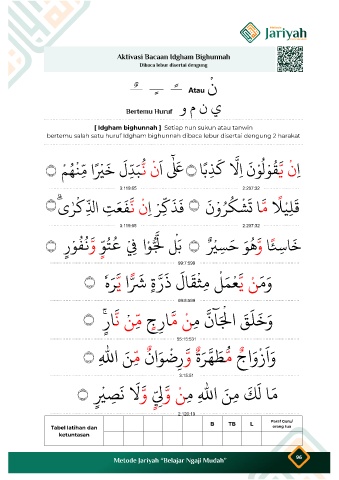 Jariyah
Aktivasi Bacaan Idgham Bighunnah
Dibaca lebur disertai dengung
ـً ـٍ ـٌ Atau نْ
Bertemu Huruf ي ن م و
[ Idgham bighunnah ] Setiap nun sukun atau tanwin
bertemu salah satu huruf Idgham bighunnah dibaca lebur disertai dengung 2 harakat
اِنْ يَّقُوْلُوْنَ اِلَّا كَذِبًا ۝ عَلٰٓى اَنْ نُّبَدِّلَ خَيْرًا مِّنْهُمْ ۝
قَلِيْلًا مَّا تَشْكُرُوْنَ ۝ فَذَكِّرْ اِنْ نَّفَعَتِ الذِّكْرٰىۗ ۝
خَاسِئًا وَّهُوَ حَسِيْرٌ ۝ بَلْ لَّجُّوْا فِيْ عُتُوٍّ وَّنُفُوْرٍ ۝
وَمَنْ يَّعْمَلْ مِثْقَالَ ذَرَّةٍ شَرًّا يَّرَهٗ ۝
وَخَلَقَ الْجَاۤنَّ مِنْ مَّارِجٍ مِّنْ نَّارٍۚ ۝
وَاَزْوَاجٌ مُّطَهَّرَةٌ وَّرِضْوَانٌ مِّنَ اللهِ ۝
مَا لَكَ مِنَ اللهِ مِنْ وَّلِيٍّ وَّلَا نَصِيْرٍ ۝
Tabel latihan dan ketuntasan
B TB L
Paraf Guru/ orang tua
Metode Jariyah "Belajar Ngaji Mudah"
96